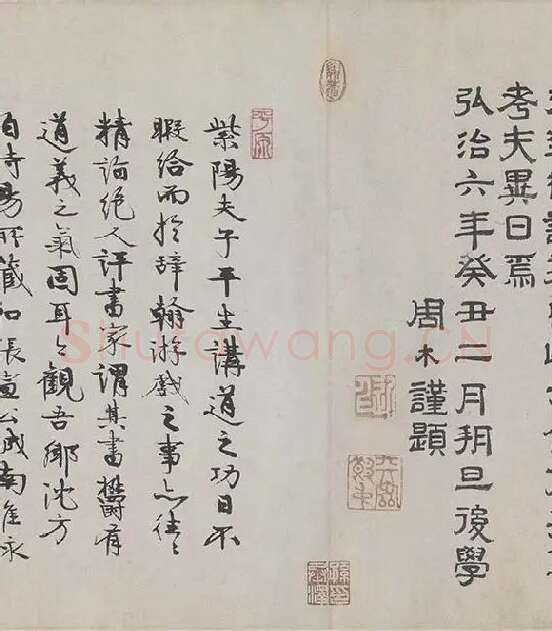 考夫異日焉
弘治六年癸丑二月朔旦後學
周木謹題
紫陽夫子平生講道之功日不
暇給而於辭翰游戲之事亦往〻
精詣絕人評書家謂其書鬱有
道義之氣固耳今觀吾鄉沈方
伯時暘所藏和張宣公城南雜詠
Shufawang.CN